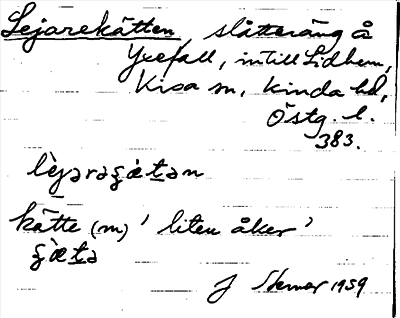 Lejarekätten, slåtteräng å
Yxefall, intill Lidhem,
Kisa sn, Kinda hd,
Östg. l.
383.
lèjaragæ̀tan
kätte (m) 'liten åker'
gæ̀tə
J Sterner 1959